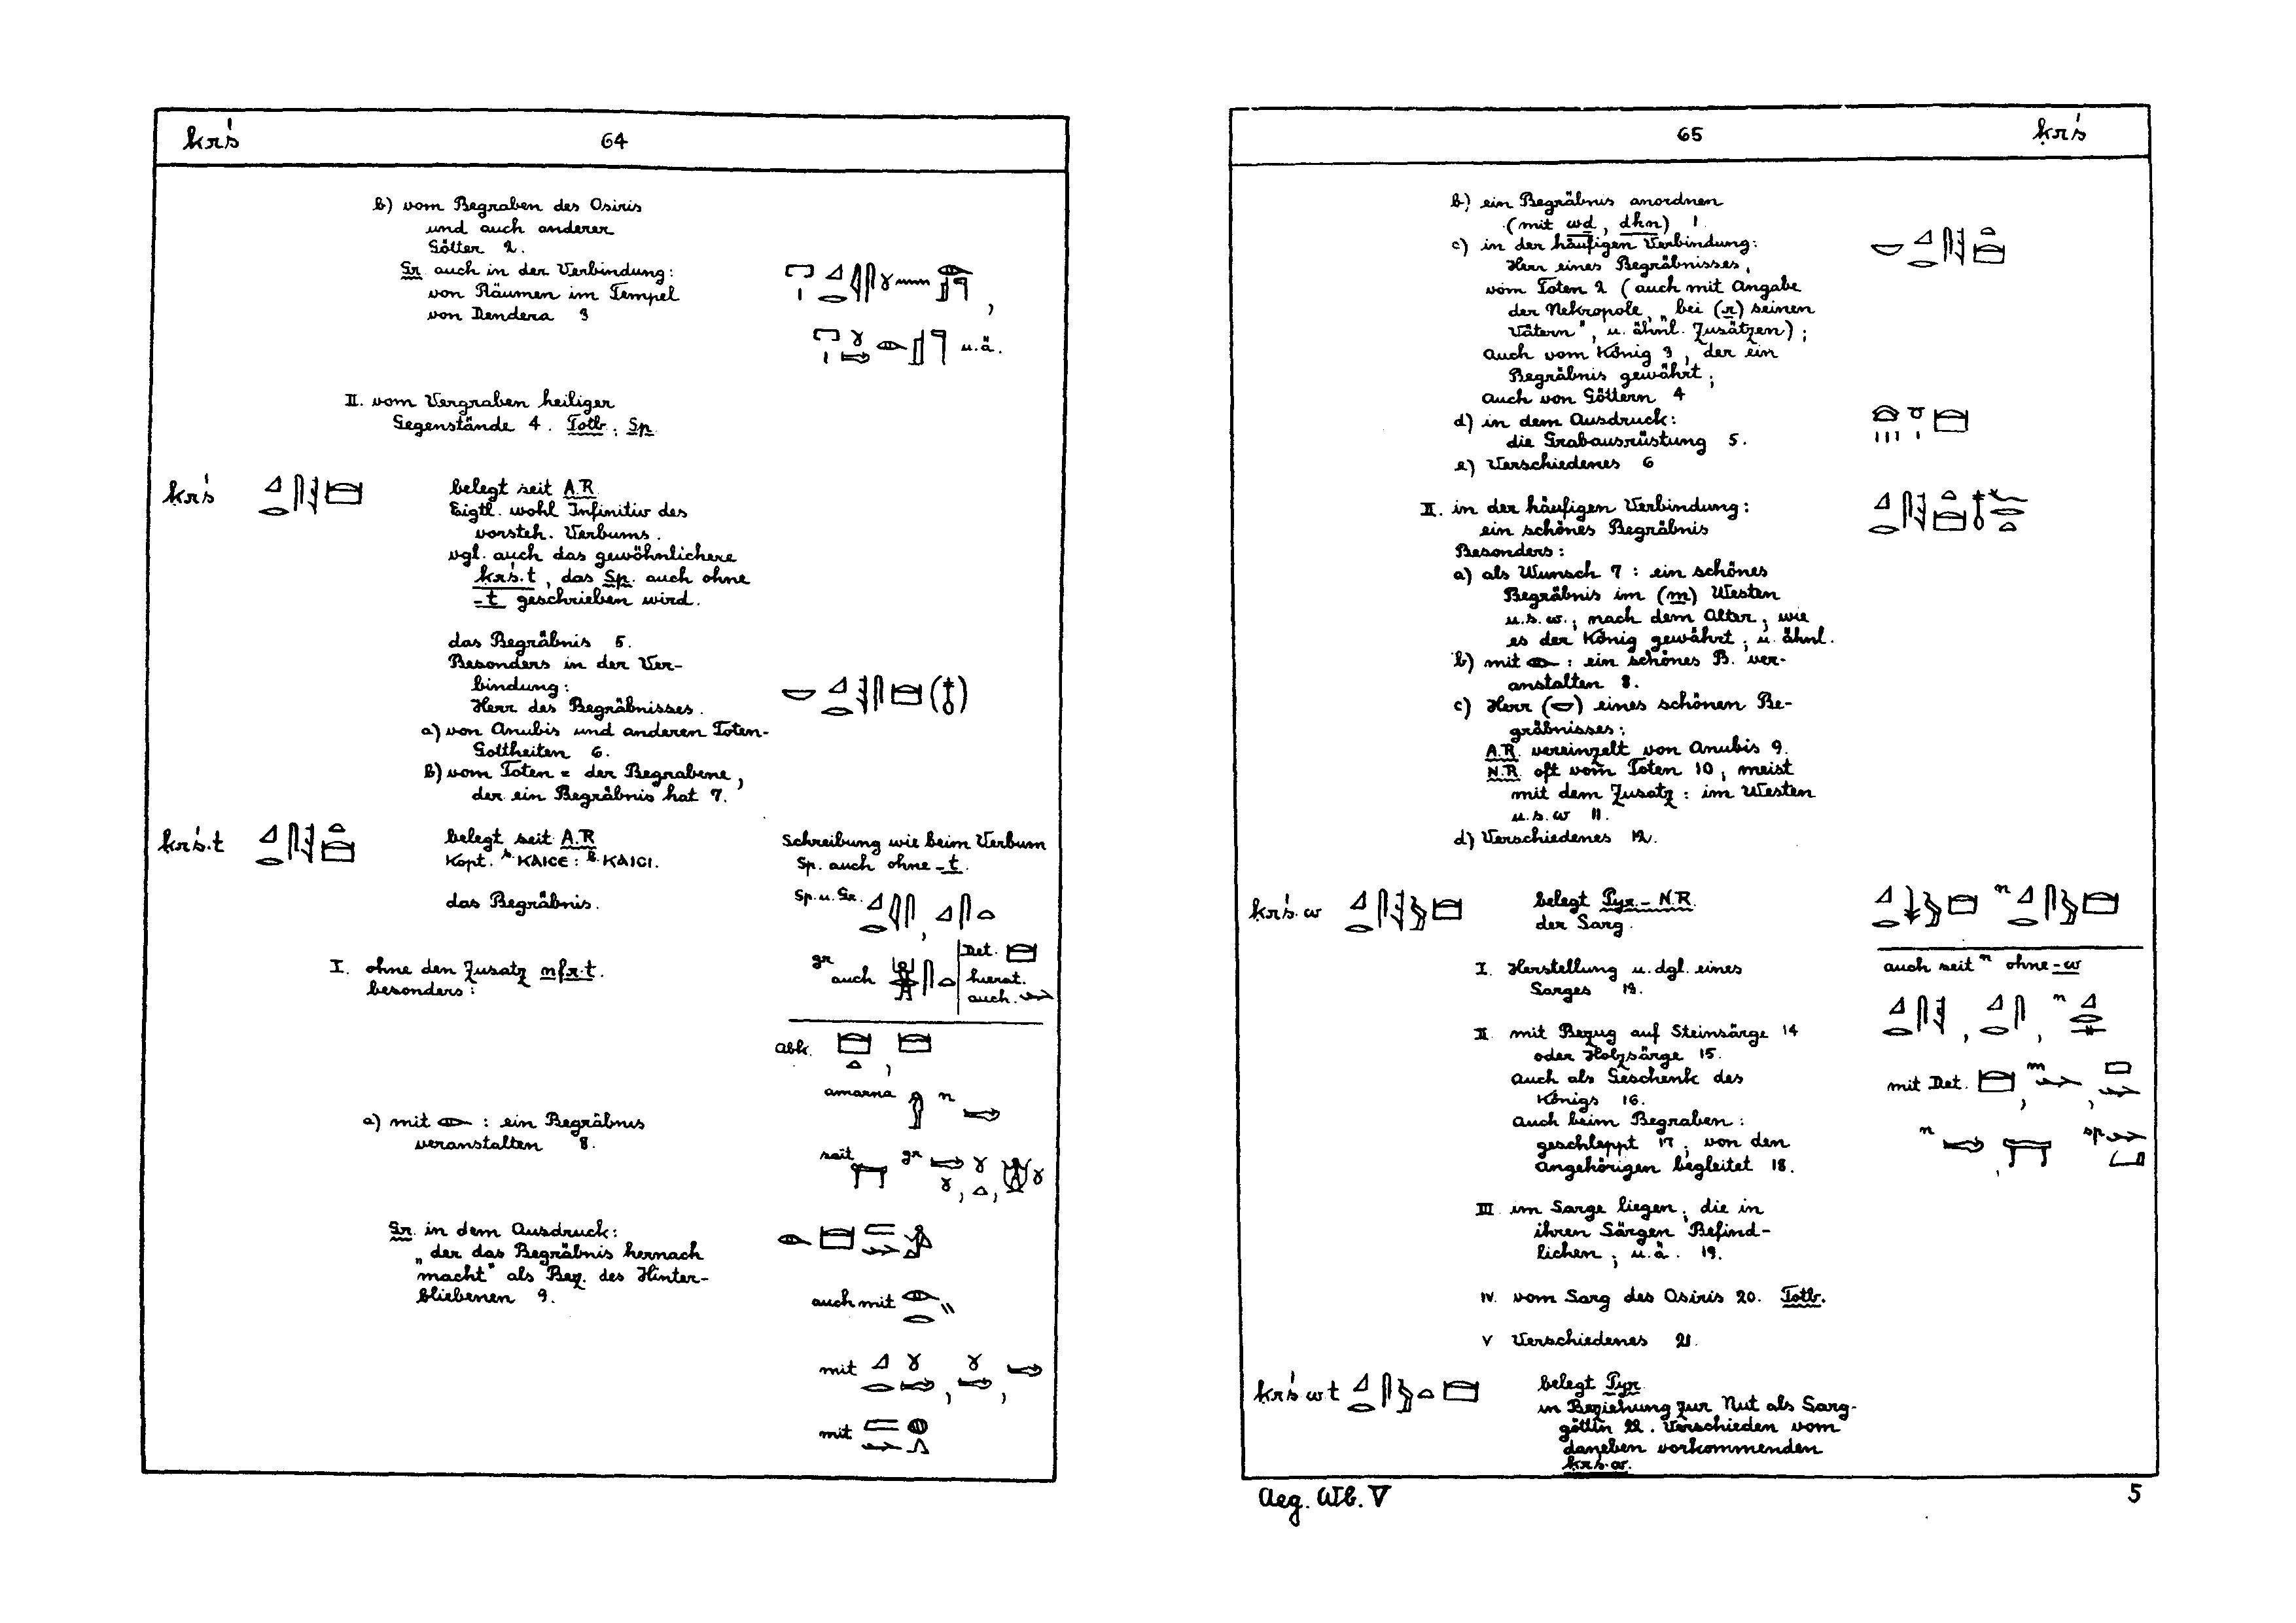 ḳrś 64
b) vom Begraben des Osiris
und auch anderer
Götter 2.
Gr. auch in der Verbindung:
von Räumen im Tempel
von Dendera 3
u.ä.
II. vom Vergraben heiliger
Gegenstände 4. Totb., Sp.
ḳrś belegt seit A.R.
Eigtl. wohl Infinitiv des
vorsteh. Verbums.
vgl. auch das gewöhnlichere
ḳrś.t, das Sp. auch ohne
-t geschrieben wird.
das Begräbnis 5.
Besonders in der Ver-
bindung:
Herr des Begräbnisses.
a) von Anubis und anderen Toten-
Gottheiten 6.
b) vom Toten = der Begrabene,
der ein Begräbnis hat 7.
ḳrś.t belegt seit A.R.
Kopt. S. ⲕⲁⲓⲥⲉ : B. ⲕⲁⲓⲥⲓ.
das Begräbnis.
Schreibung wie beim Verbum
Sp. auch ohne -t.
Sp. u. Gr.
gr auch
Det.
hierat.
auch
I. ohne den Zusatz nfr.t.
besonders:
Abk.
Amarna n
a) mit : ein Begräbnis
veranstalten 8.
seit gr
Gr. in dem Ausdruck:
„der das Begräbnis hernach
macht" als Bez. des Hinter-
bliebenen 9.
auch mit
mit
mit
65 ḳrś
b) ein Begräbnis anordnen
(mit wḏ, dhn) 1
c) in der häufigen Verbindung:
Herr eines Begräbnisses,
vom Toten 2 (auch mit Angabe
der Nekropole, „bei (r) seinen
Vätern", u. ähnl. Zusätzen);
auch vom König 3, der ein
Begräbnis gewährt;
auch von Göttern 4
d) in dem Ausdruck:
die Grabausrüstung 5.
e) Verschiedenes 6
II. in der häufigen Verbindung:
ein schönes Begräbnis
Besonders:
a) als Wunsch 7 : ein schönes
Begräbnis im (m) Westen
u.s.w., nach dem Alter, wie
es der König gewährt, u. ähnl.
b) mit : ein schönes B. ver-
anstalten 8.
c) Herr ( ) eines schönen Be-
gräbnisses;
A.R. vereinzelt von Anubis 9.
N.R. oft vom Toten 10, meist
mit dem Zusatz : im Westen
u.s.w 11.
d) Verschiedenes 12.
ḳrś.w belegt Pyr. – N.R.
der Sarg.
n
auch seit n ohne -w
n
mit Det. m
n sp
I. Herstellung u. dgl. eines
Sarges 13.
II mit Bezug auf Steinsärge 14
oder Holzsärge 15.
auch als Geschenk des
Königs 16.
auch beim Begraben:
geschleppt 17, von den
Angehörigen begleitet 18.
III im Sarge liegen, die in
ihren Särgen Befind-
lichen, u.ä. 19.
IV. vom Sarg des Osiris 20. Totb.
V Verschiedenes 21.
ḳrś wt belegt Pyr.
in Beziehung zur Nut als Sarg-
göttin 22. Verschieden vom
daneben vorkommenden
ḳrś.w.
Aeg. Wb. V 5